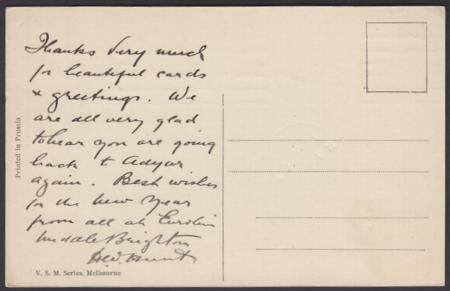 Thanks very much
for beautiful cards
& greetings. We
are all very glad
to hear you are going
back to Adyar
again. Best wishes
for the New Year
from all at
Brighton
Hunt
Printed in Prussia
V. S. M. Series, Melbourne